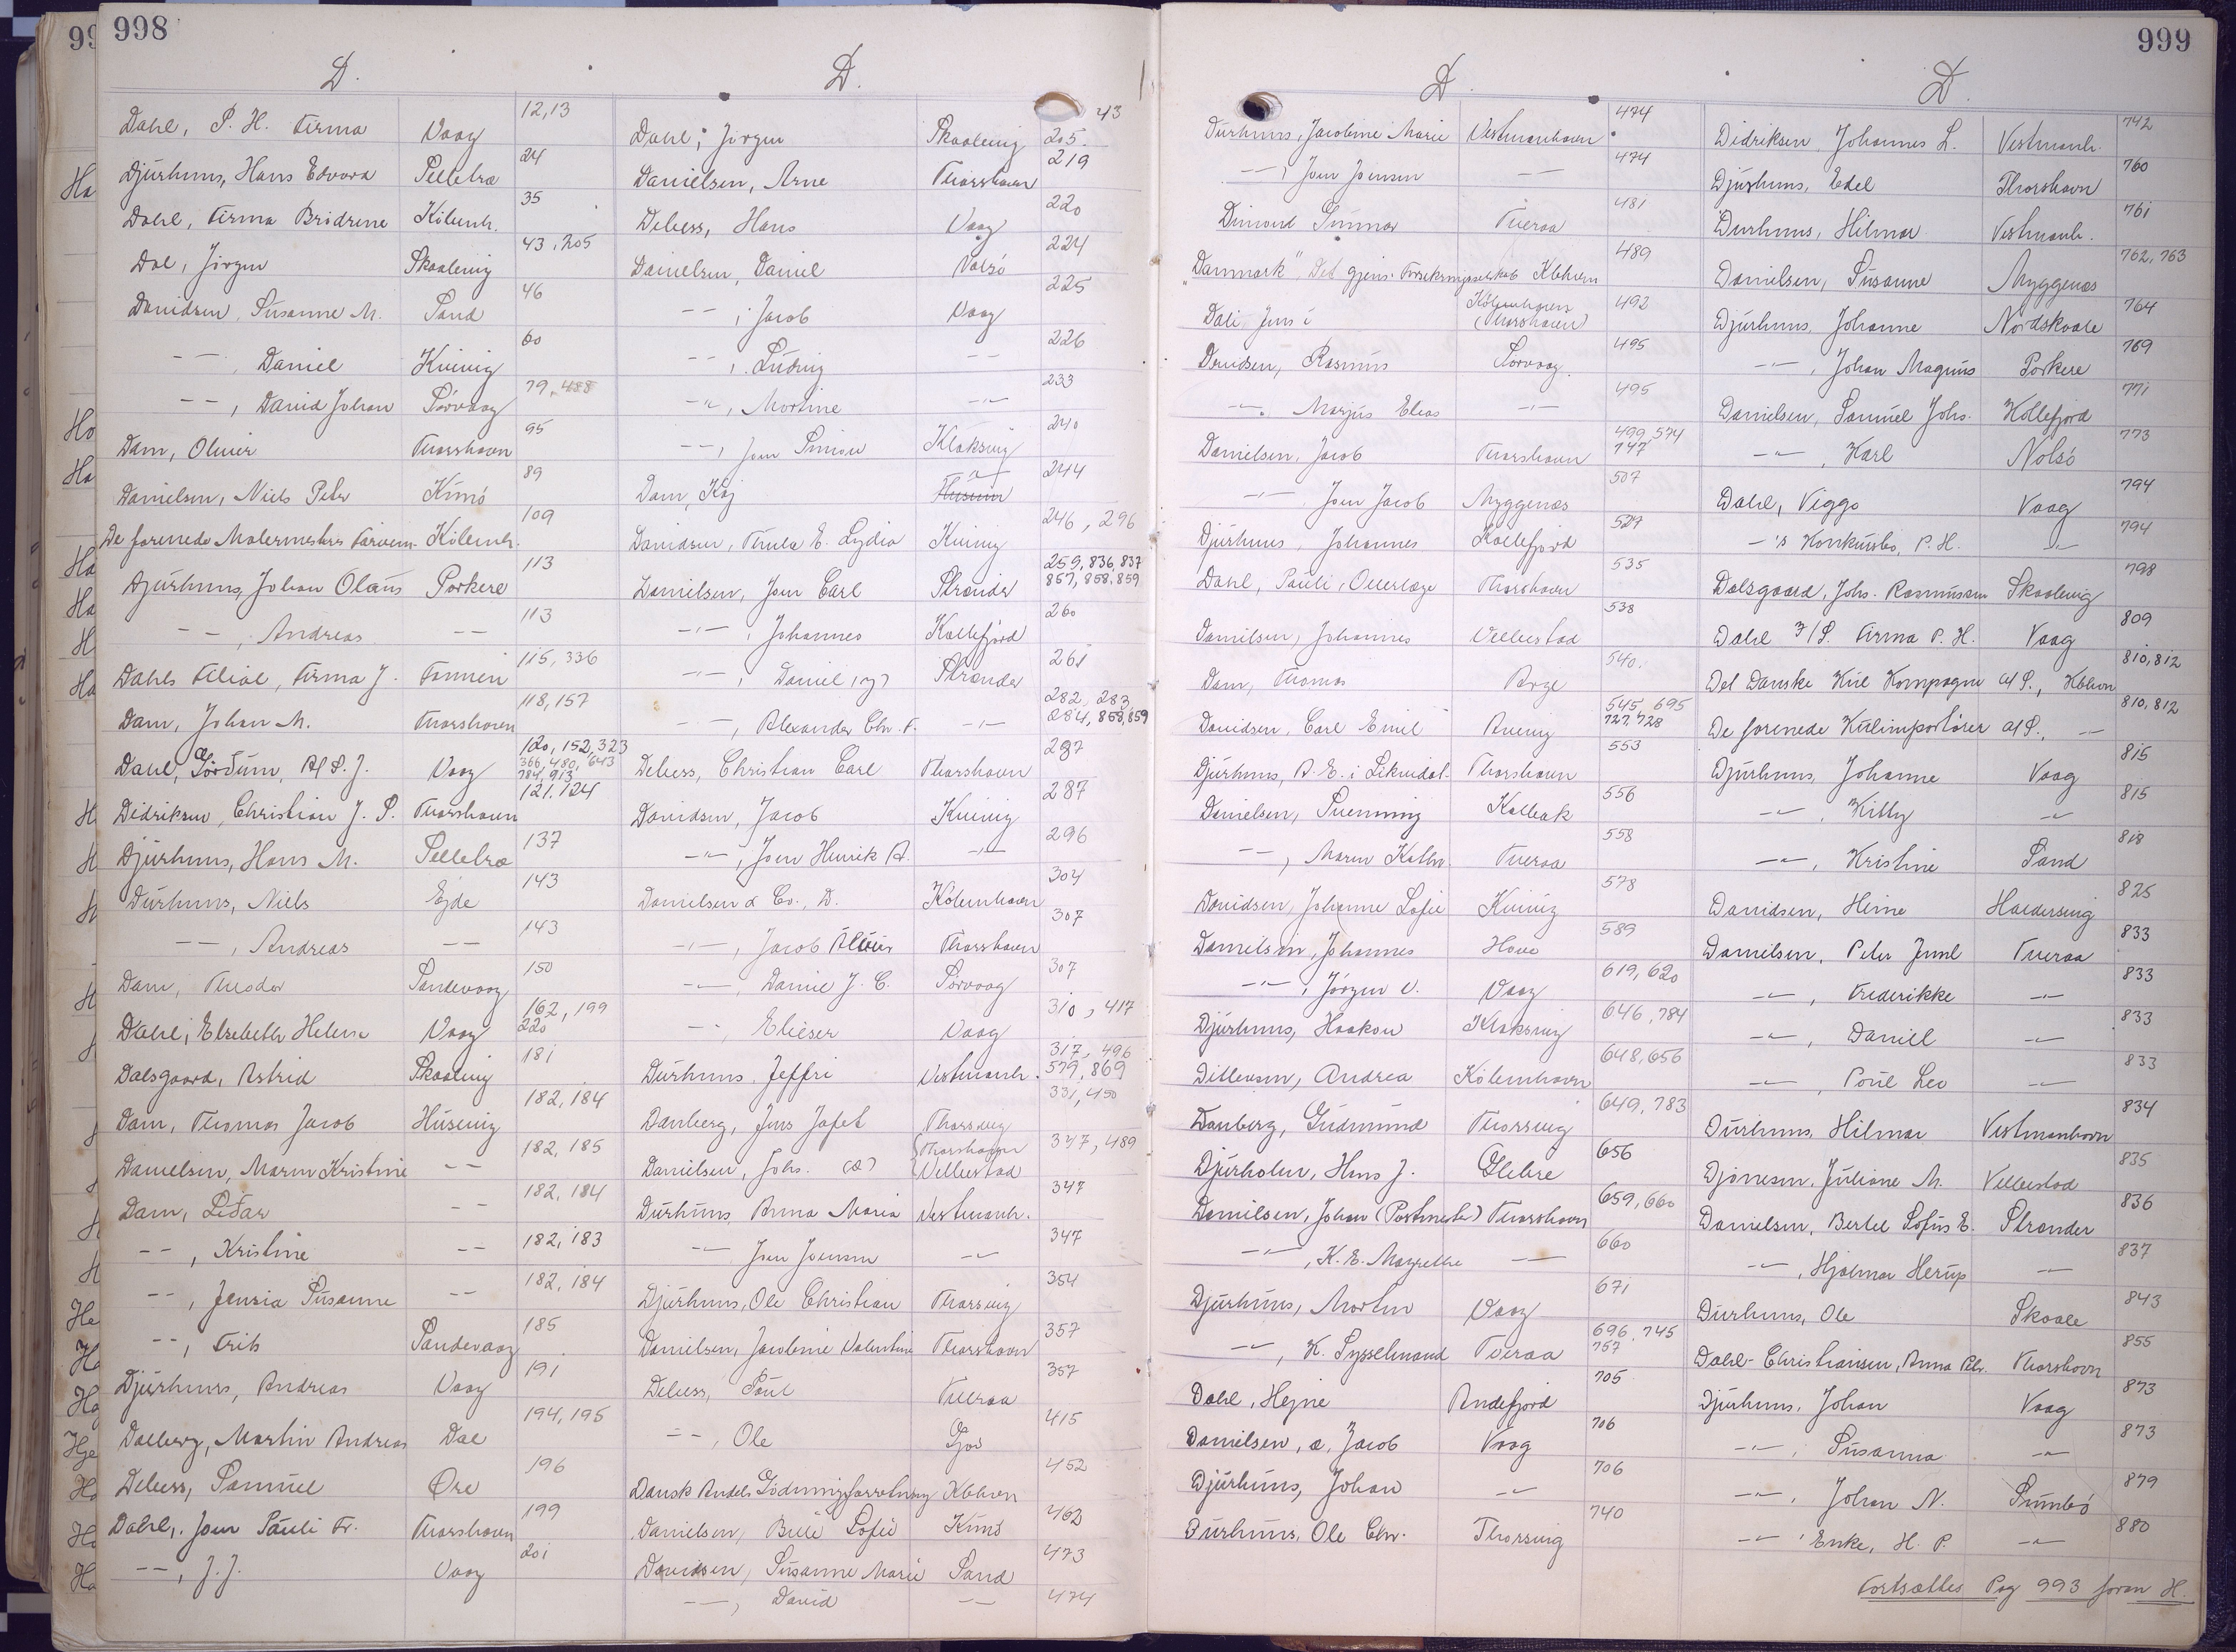 998
D. D.
Dahl, P. H. Firma Vaag 12,13
Djurhuus, Hans Edvard Selletræ 24
Dahl, Firma Brödrene Köbenh. 35
Dal, Jörgen Skaalevig 43, 205
Davidsen, Susanne M. Sand 46
-- Daniel Kvivig 60
--, David Johan Sörvaag 79, 488
Dam, Oliver Thorshavn 95
Danielsen, Niels Peter Kunö 89
De forenede Malermestres Farvem. Köbenh. 109
Djurhuus, Johan Olaus Porkere 113
--, Andreas -- 113
Dahls Filial, Firma J. Famien 115, 336
Dam, Johan M. Thorshavn 118, 157
Dahl, Vaag 120, 152, 323
366, 480, 643
784, 913
Didriksen, Christian J. P. Thorshavn 121, 724
Djurhuus, Hans M. Selletræ 137
Durhuus, Niels Ejde 143
--, Andreas -- 143
Dam, Theodor Sandevaag 150
Dahl, Elsebeth Helena Vaag 162, 199
220
Dalsgaard, Astrid Skaalevig 181
Dam, Thomas Jacob Húsevig 182, 184
Danielsen, Maren Kristine -- 182, 185
Dam, Lidar -- 182, 184
--, Kristine -- 182, 183
--, Jensia Susanne -- 182, 184
--, Frits Sandevaag 185
Djurhuus, Andreas Vaag 191
Dalberg, Martin Andreas Dal 194, 195
Debess, Samúel Øre 196
Dahl, Joen Páuli Fr. Thorshavn 199
--, J. J. Vaag 201
Dahl, Jörgen Skaalevig 43
205.
Danielsen, Arne Thorshavn 219
Debess, Hans Vaag 220
Danielsen, Daniel Nolsö 224
--, Jacob Vaag 225
--, Ludvig -- 226
--, Mortine -- 233
--, Joen Simon Klaksvig 240
Dam, Kaj Husum 244
Davidsen, Thula E. Lydia Kvivig 246, 296
Danielsen, Joen Carl Strender 259, 836, 837
857, 858, 859
--, Johannes Kollefjord 260
--, Daniel (y) Strender 261
--, Alexander Chr. F. -- 282, 283,
284, 858, 859
Debess, Christian Carl Thorshavn 287
Davidsen, Jacob Kvivig 287
--, Joen Henrik A. -- 296
Danielsen & Co., D. Köbenhavn 304
--, Jacob Thorshavn 307
--, Daniel J. C. Sörvaag 307
-- Elieser Vaag 310, 417
Durhuus, Jeffri Vestmanh. 317, 496
579, 869
Danberg, Jens Jafet Thorsvig 331, 450
Danielsen, Johs. (æ) Thorshavn
Vellestad 347, 489
Durhuus, Anna Maria Vestmanh. 347
-- Joen Joensen -- 347
Djurhuus, Ole Christian Thorsvig 354
Danielsen, Jacobine Valentine Thorshavn 357
Debess, Poul Tveraa 357
--, Ole Gjov 415
Dansk Andels Gödningsforretning Kbhvn 452
Danielsen, Sofie Kunö 462
Davidsen, Susanne Marie Sand 473
--, David -- 474
999
D D.
Durhuus, Jacobine Marie Vestmanhavn 474
--, Joen Joensen -- 474
Dimond Gunnar Tveraa 481
"Danmark", Det gjens. Forsikringsselskab Kbhvn 489
Dali Jens i Köbenhavn
(Thorshavn) 492
Davidsen, Rasmus Sorvaag 495
--, Marjus Elias -- 495
Danielsen, Jacob Thorshavn 499, 574
747
-- Joen Jacob Myggenæs 507
Djurhuus, Johannes Kollefjord 527
Dahl, Pauli, Overlæge Thorshavn 535
Danielsen, Johannes Vellestad 538
Dam, Thomas Arge 540.
Davidsen, Carl Emil 545, 695
727, 728
Djurhuus, A. E. i Likvidat. Thorshavn 553
Danielsen, Svenning Kalbak 556
--, Maren Kathr. Tveraa 558
Davidsen, Johanne Sofie Kvivig 578
Danielsen, Johannes Hove 589
--, Jörgen V. Vaag 619, 620
Djurhuus, Haakon Klaksvig 646, 784
Ditlevsen, Andrea Köbenhavn 648, 656
Danberg, Gudmund Thorsvig 649, 783
Djurholm, Hans J. Glebre 656
Danielsen, Johan (Postmester) Thorshavn 659, 660
--, K. E. Magrethe -- 660
Djurhuus, Morten Vaag 671
--, K. Sysselmand Tveraa 696, 745
757
Dahl, Hejne Andefjord 705
Danielsen, a, Jacob Vaag 706
Djurhuus, Johan -- 706
Durhuus, Ole Chr. Thorsvig 740
Didriksen, Johannes L. Vestmanh. 742
Djurhuus, Edel Thorshavn 760
Durhuus, Hilmar Vestmanh. 761
Danielsen, Susanne Myggenæs 762, 763
Djurhuus, Johanne Nordskaale 764
--, Johan Magnus Porkere 769
Danielsen, Samuel Johs. Kollefjord 771
--, Karl Nolsö 773
Dahl, Viggo Vaag 794
-'s Konkursbo, P. H. -- 794
Dalsgaard, Johs. Rasmussen Skaalevig 798
Dahl I/S. Firma P. H. Vaag 809
Det Danske Kul Kompagni A/S., Kbhvn 810, 812
De forenede Kulimportörer A/S., -- 810, 812
Djurhuus, Johanne Vaag 815
--, Kitty -- 815
--, Kristine Sand 818
Davidsen, Heine Haldersvig 825
Danielsen, Peter Juul Tveraa 833
--, Frederikke -- 833
--, Daniel -- 833
--, Poul Leo -- 833
Durhuus, Hilmar Vestmanhavn 834
Djonesen, Juliane M. Vellestad 835
Danielsen, Bertel Sofus E. Strender 836
--, Hjalmar Herup -- 837
Durhuus, Ole Skaale 843
Dahl-Christiansen, Anna Thorshavn 855
Djurhuus, Johan Vaag 873
--, Susanna -- 873
--, Johan N. Sumbö 879
-- Enke, H. P. -- 880
Fortsættes Pag 993 foran H.